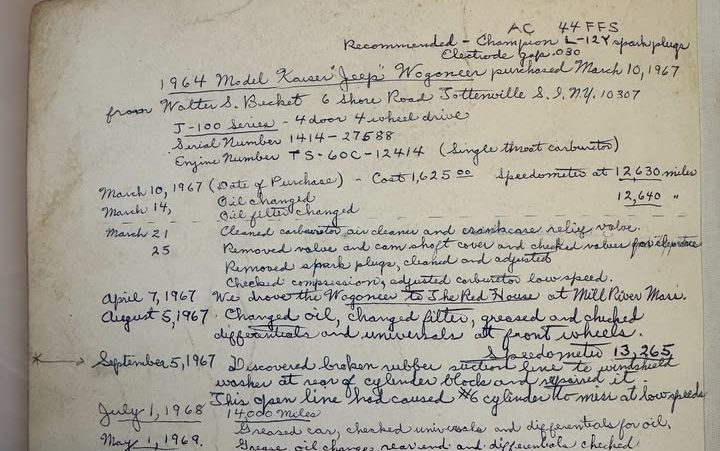 AC 44FFS
Recommended - Champion L-12Y spark plugs
Electrode gap .030
1964 Model Kaiser "Jeep" Wogoneer purchased March 10, 1967
from Walter S. Becket 6 Shore Road Tottenville S.I. N.Y. 10307
J-100 Series - 4 door 4 wheel drive
Serial Number 1414-27588
Engine Number TS-60C-12414 (Single throat carburetor)
March 10, 1967 (Date of Purchase) - Cost 1,625.00 Speedometer at 12630 miles
March 14, Oil changed 12,640 "
Oil filter changed
March 21 Cleaned carburetor, air cleaner and crankcase relief valve.
25 Removed valve and cam shaft cover and checked valves for clearance
Removed spark plugs, cleaned and adjusted
Checked compression, adjusted carburetor low speed.
April 7, 1967 We drove the Wogoneer to The Red House at Mill River Mass.
August 5, 1967 Changed oil, changed filter, greased and checked
differentials and universals at front wheels.
Speedometer 13,265
* → September 5, 1967 Discovered broken rubber suction line to windshield
washer at rear of cylinder block and repaired it
This open line had caused #6 cylinder to miss at low speeds
July 1, 1968 14000 miles
Greased car, checked universals and differentials for oil,
May 1, 1969. Grease oil change, rear end and differentials checked